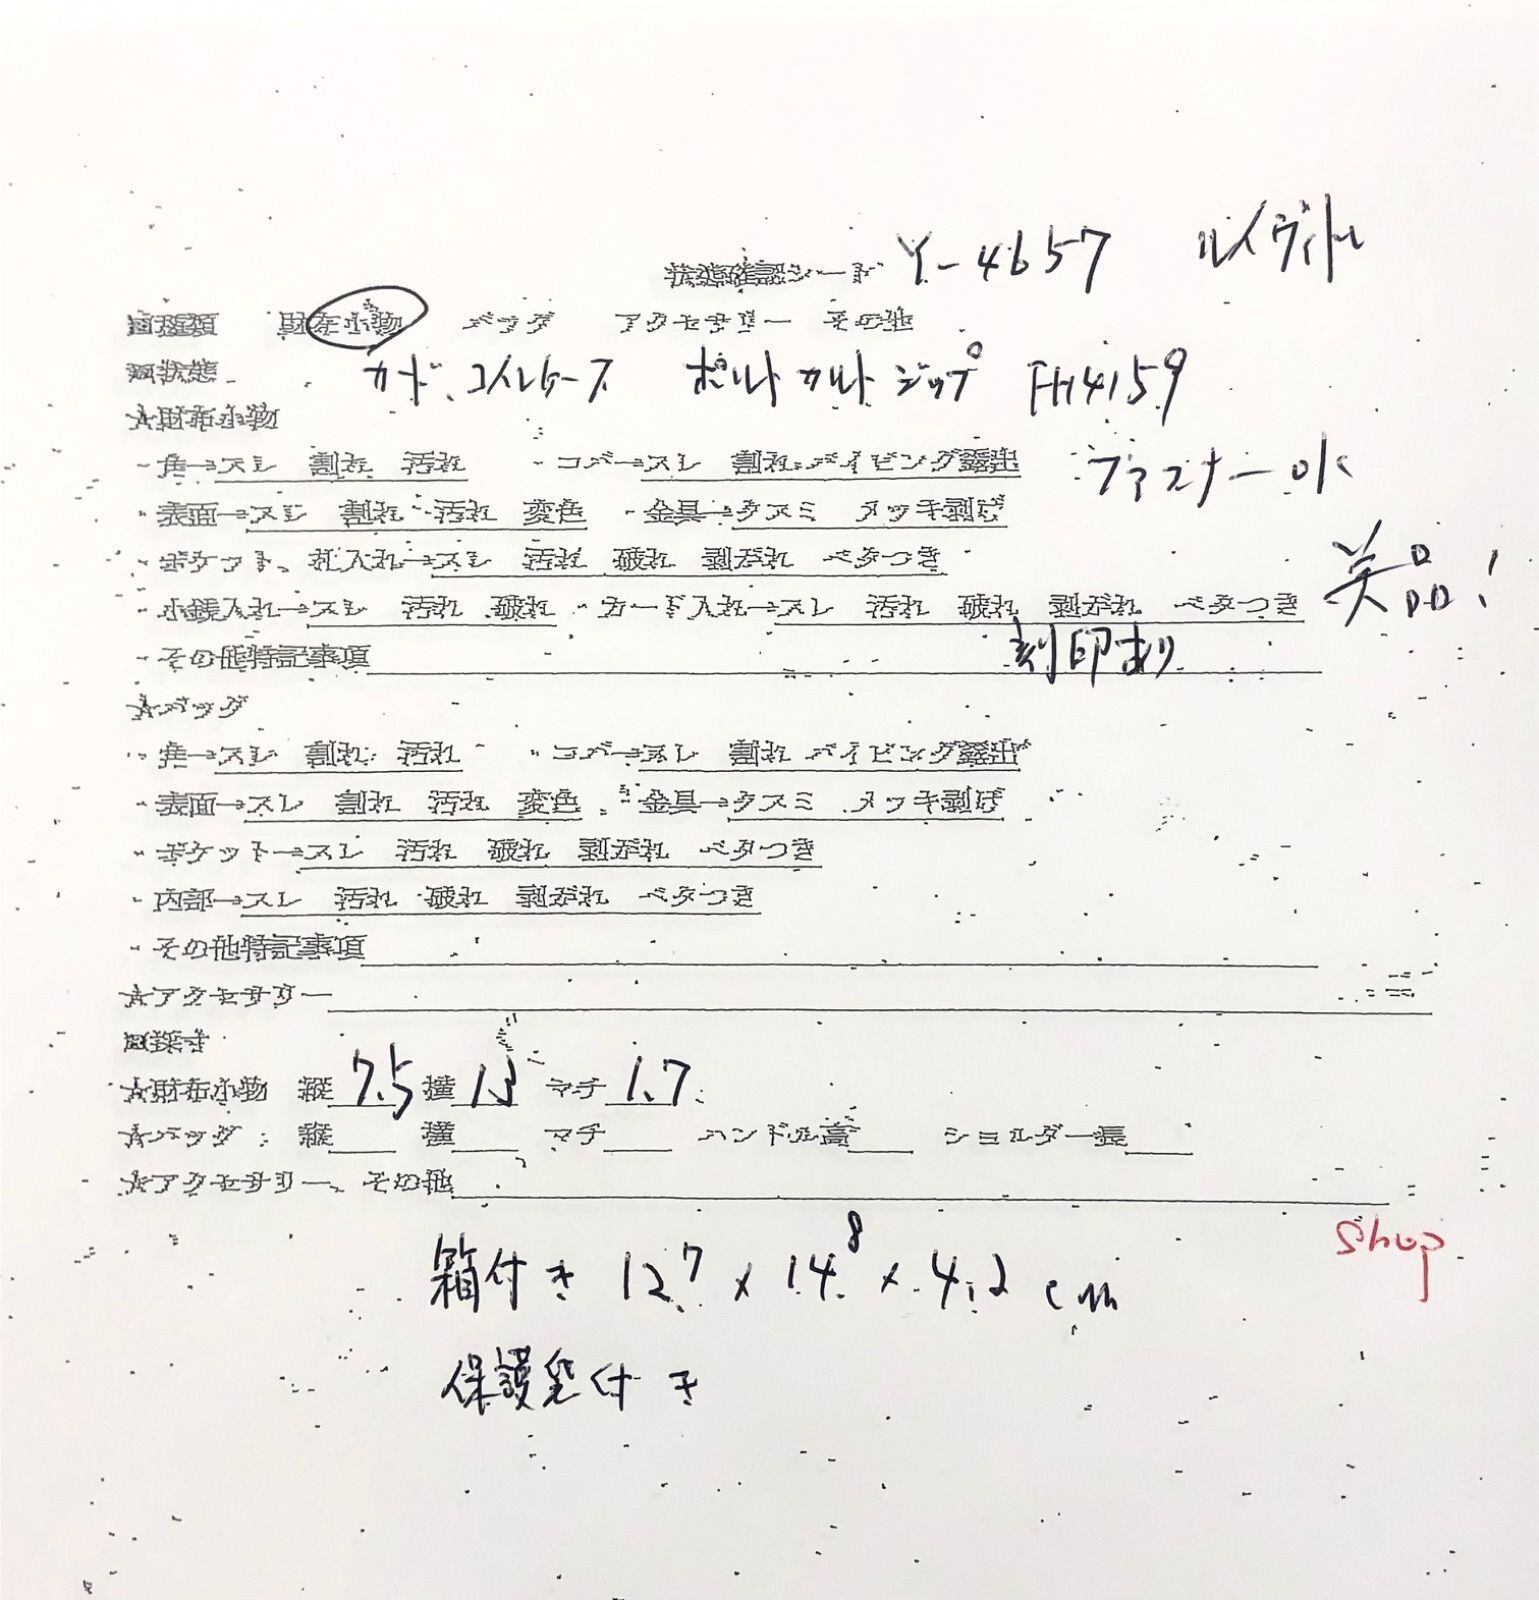 状態確認シート Y-4657 ルイヴィトン
□種類 財布小物 バッグ アクセサリー その他
□状態 カード、コインケース ポルトカルトジップ
★財布小物
・角→スレ 割れ 汚れ ・コバ→スレ 割れ パイピング露出 ファスナーok
・表面→スレ 割れ 汚れ 変色 ・金具→クスミ メッキ剥げ
・ポケット、札入れ→スレ 汚れ 破れ 剥がれ ベタつき 美品!
・小銭入れ→スレ 汚れ 破れ ・カード入れ→スレ 汚れ 破れ 剥がれ ベタつき
・その他特記事項 刻印あり
★バッグ
・角→スレ 割れ 汚れ ・コバ→スレ 割れ パイピング露出
・表面→スレ 割れ 汚れ 変色 ・金具→クスミ メッキ剥げ
・ポケット→スレ 汚れ 破れ 剥がれ ベタつき
・内部→スレ 汚れ 破れ 剥がれ ベタつき
・その他特記事項
★アクセサリー
□採寸
★財布小物 縦7.5 横13 マチ1.7
★バッグ 縦 横 マチ ハンドル高 ショルダー長
★アクセサリー、その他
shop
箱付き 12.7×14.8×4.2cm
保護袋付き